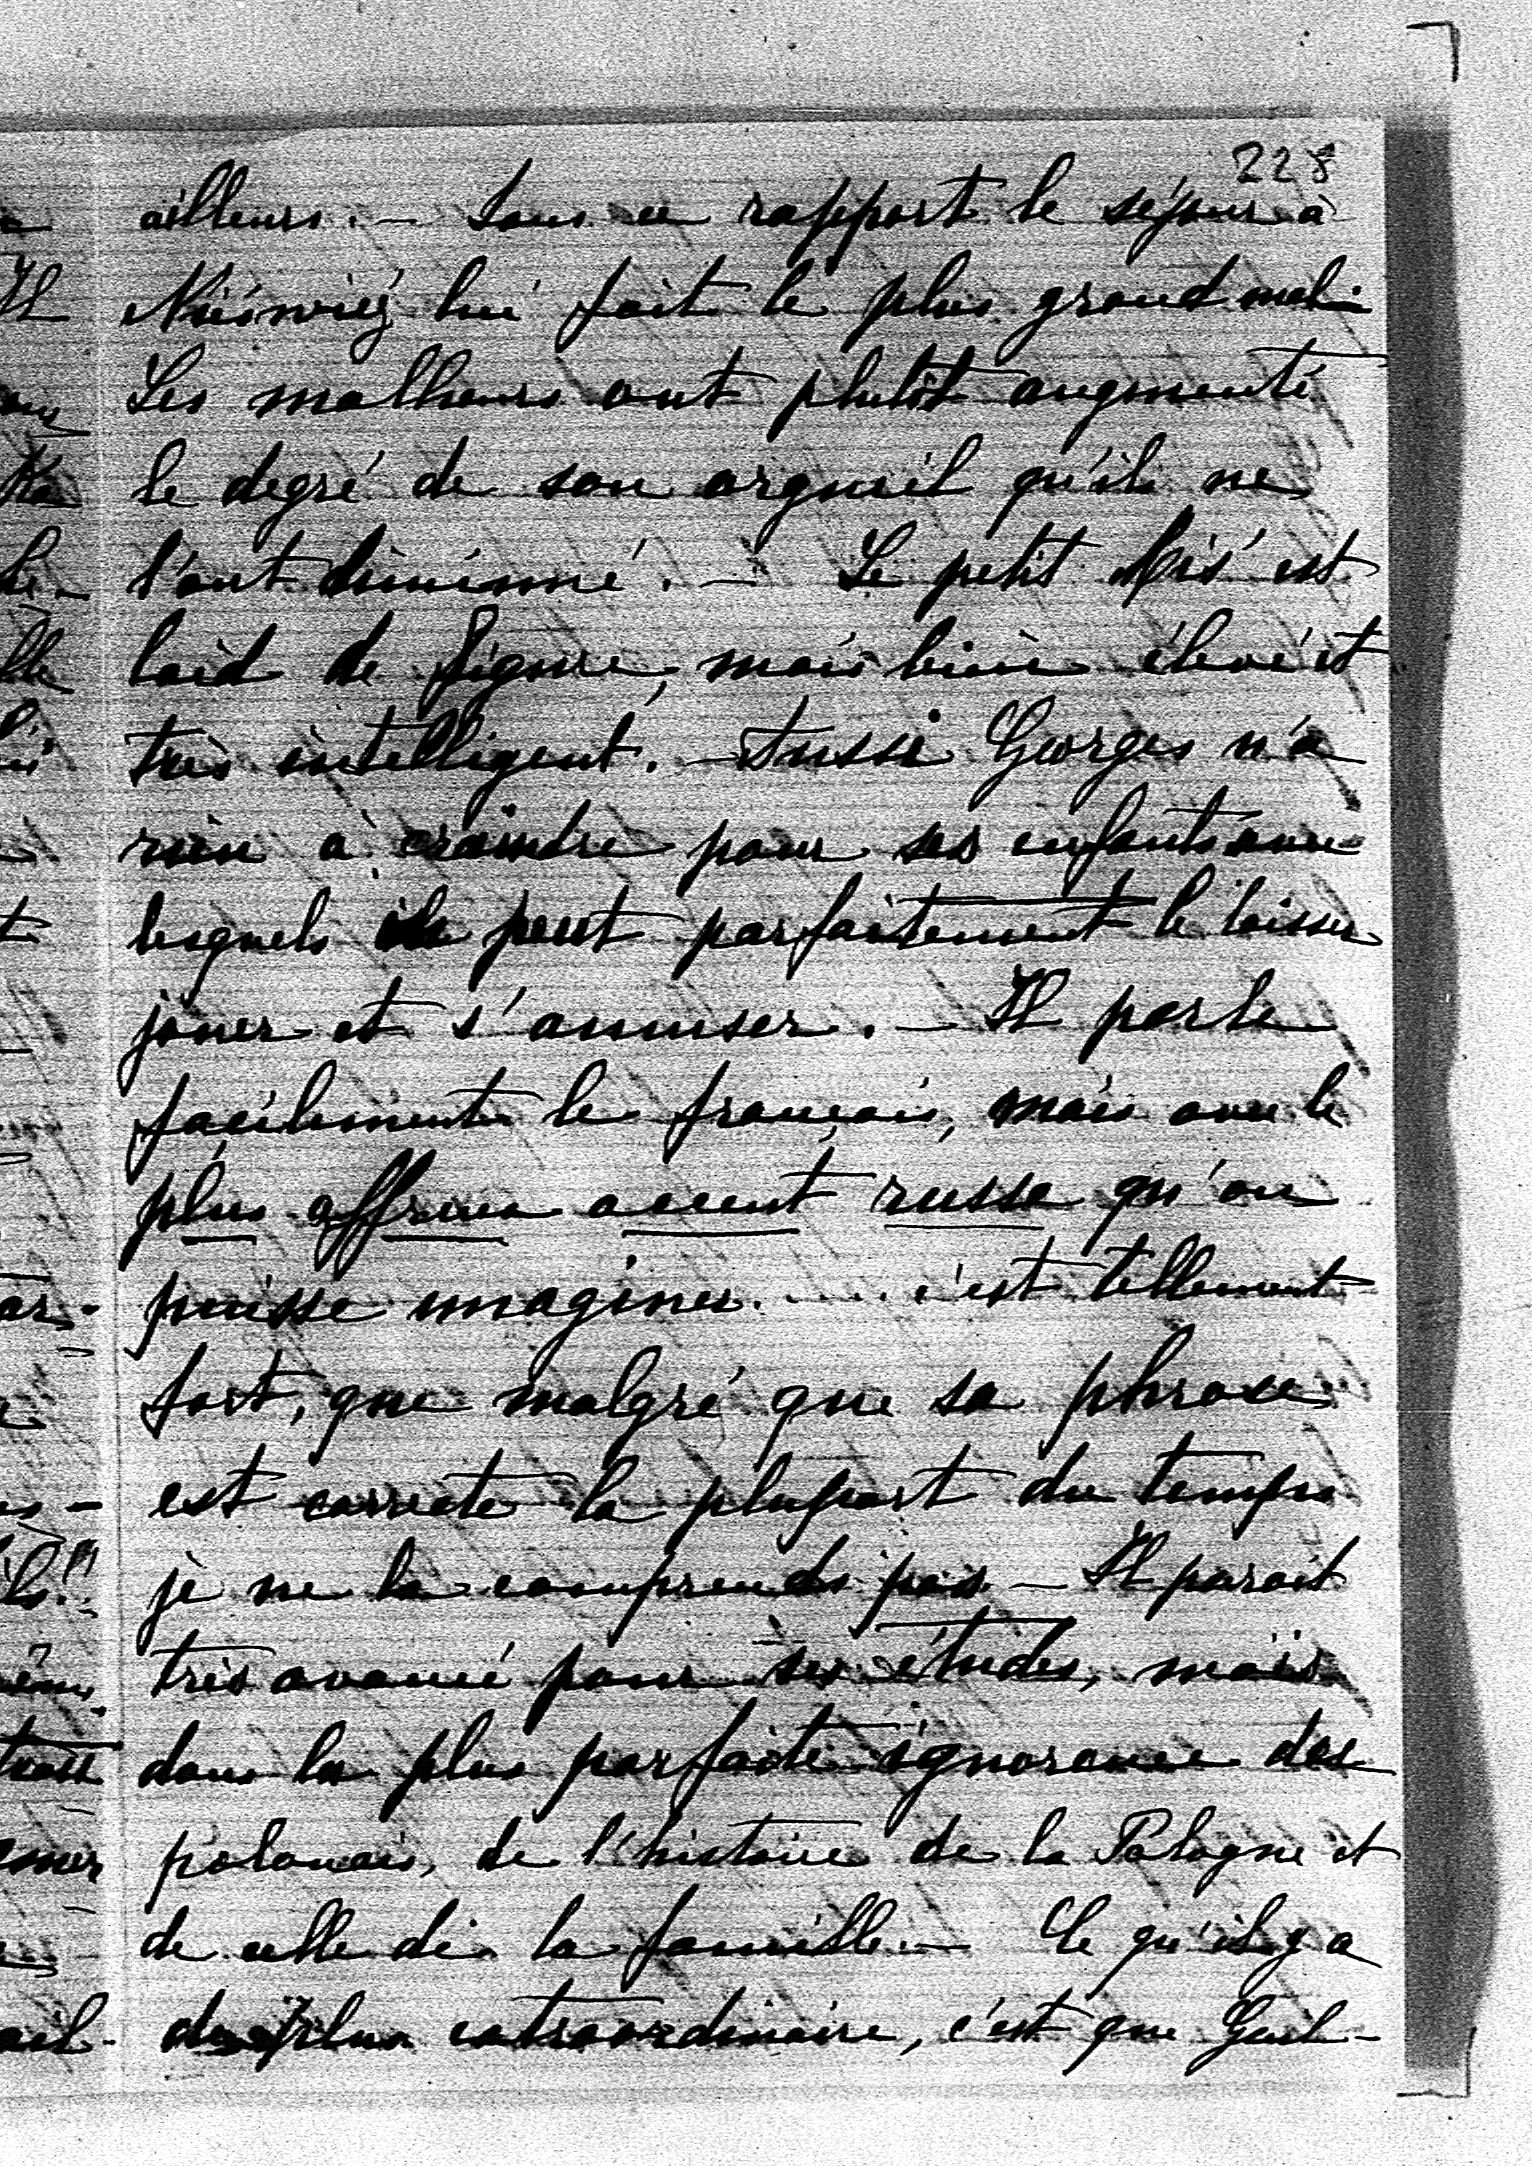 228
ailleurs. – Sous ce rapport le séjour à
Nieśwież lui fait le plus grand mal.
Les malheurs ont plutôt augmenté
le degré de son orgueil qu'ils ne
l'ont diminué. – Le petit est
laid de figure, mais bien élevé et
très intelligent. – Aussi Georges n'a
rien à craindre pour ses enfants avec
lesquels il peut parfaitement le laisser
jouer et s'amuser. – Il parle
facilement le français, mais avec le
plus affreux accent russe qu'on
puisse imaginer..... c'est tellement
fort, que malgré que sa phrase
est correcte la plupart du temps
je ne la comprends pas – Il parait
très avancé pour ses études, mais
dans la plus parfaite ignorance des
polonais, de l'histoire de la Pologne et
de celle de la famille. – Ce qu'il y a
de plus extraordinaire, c'est que